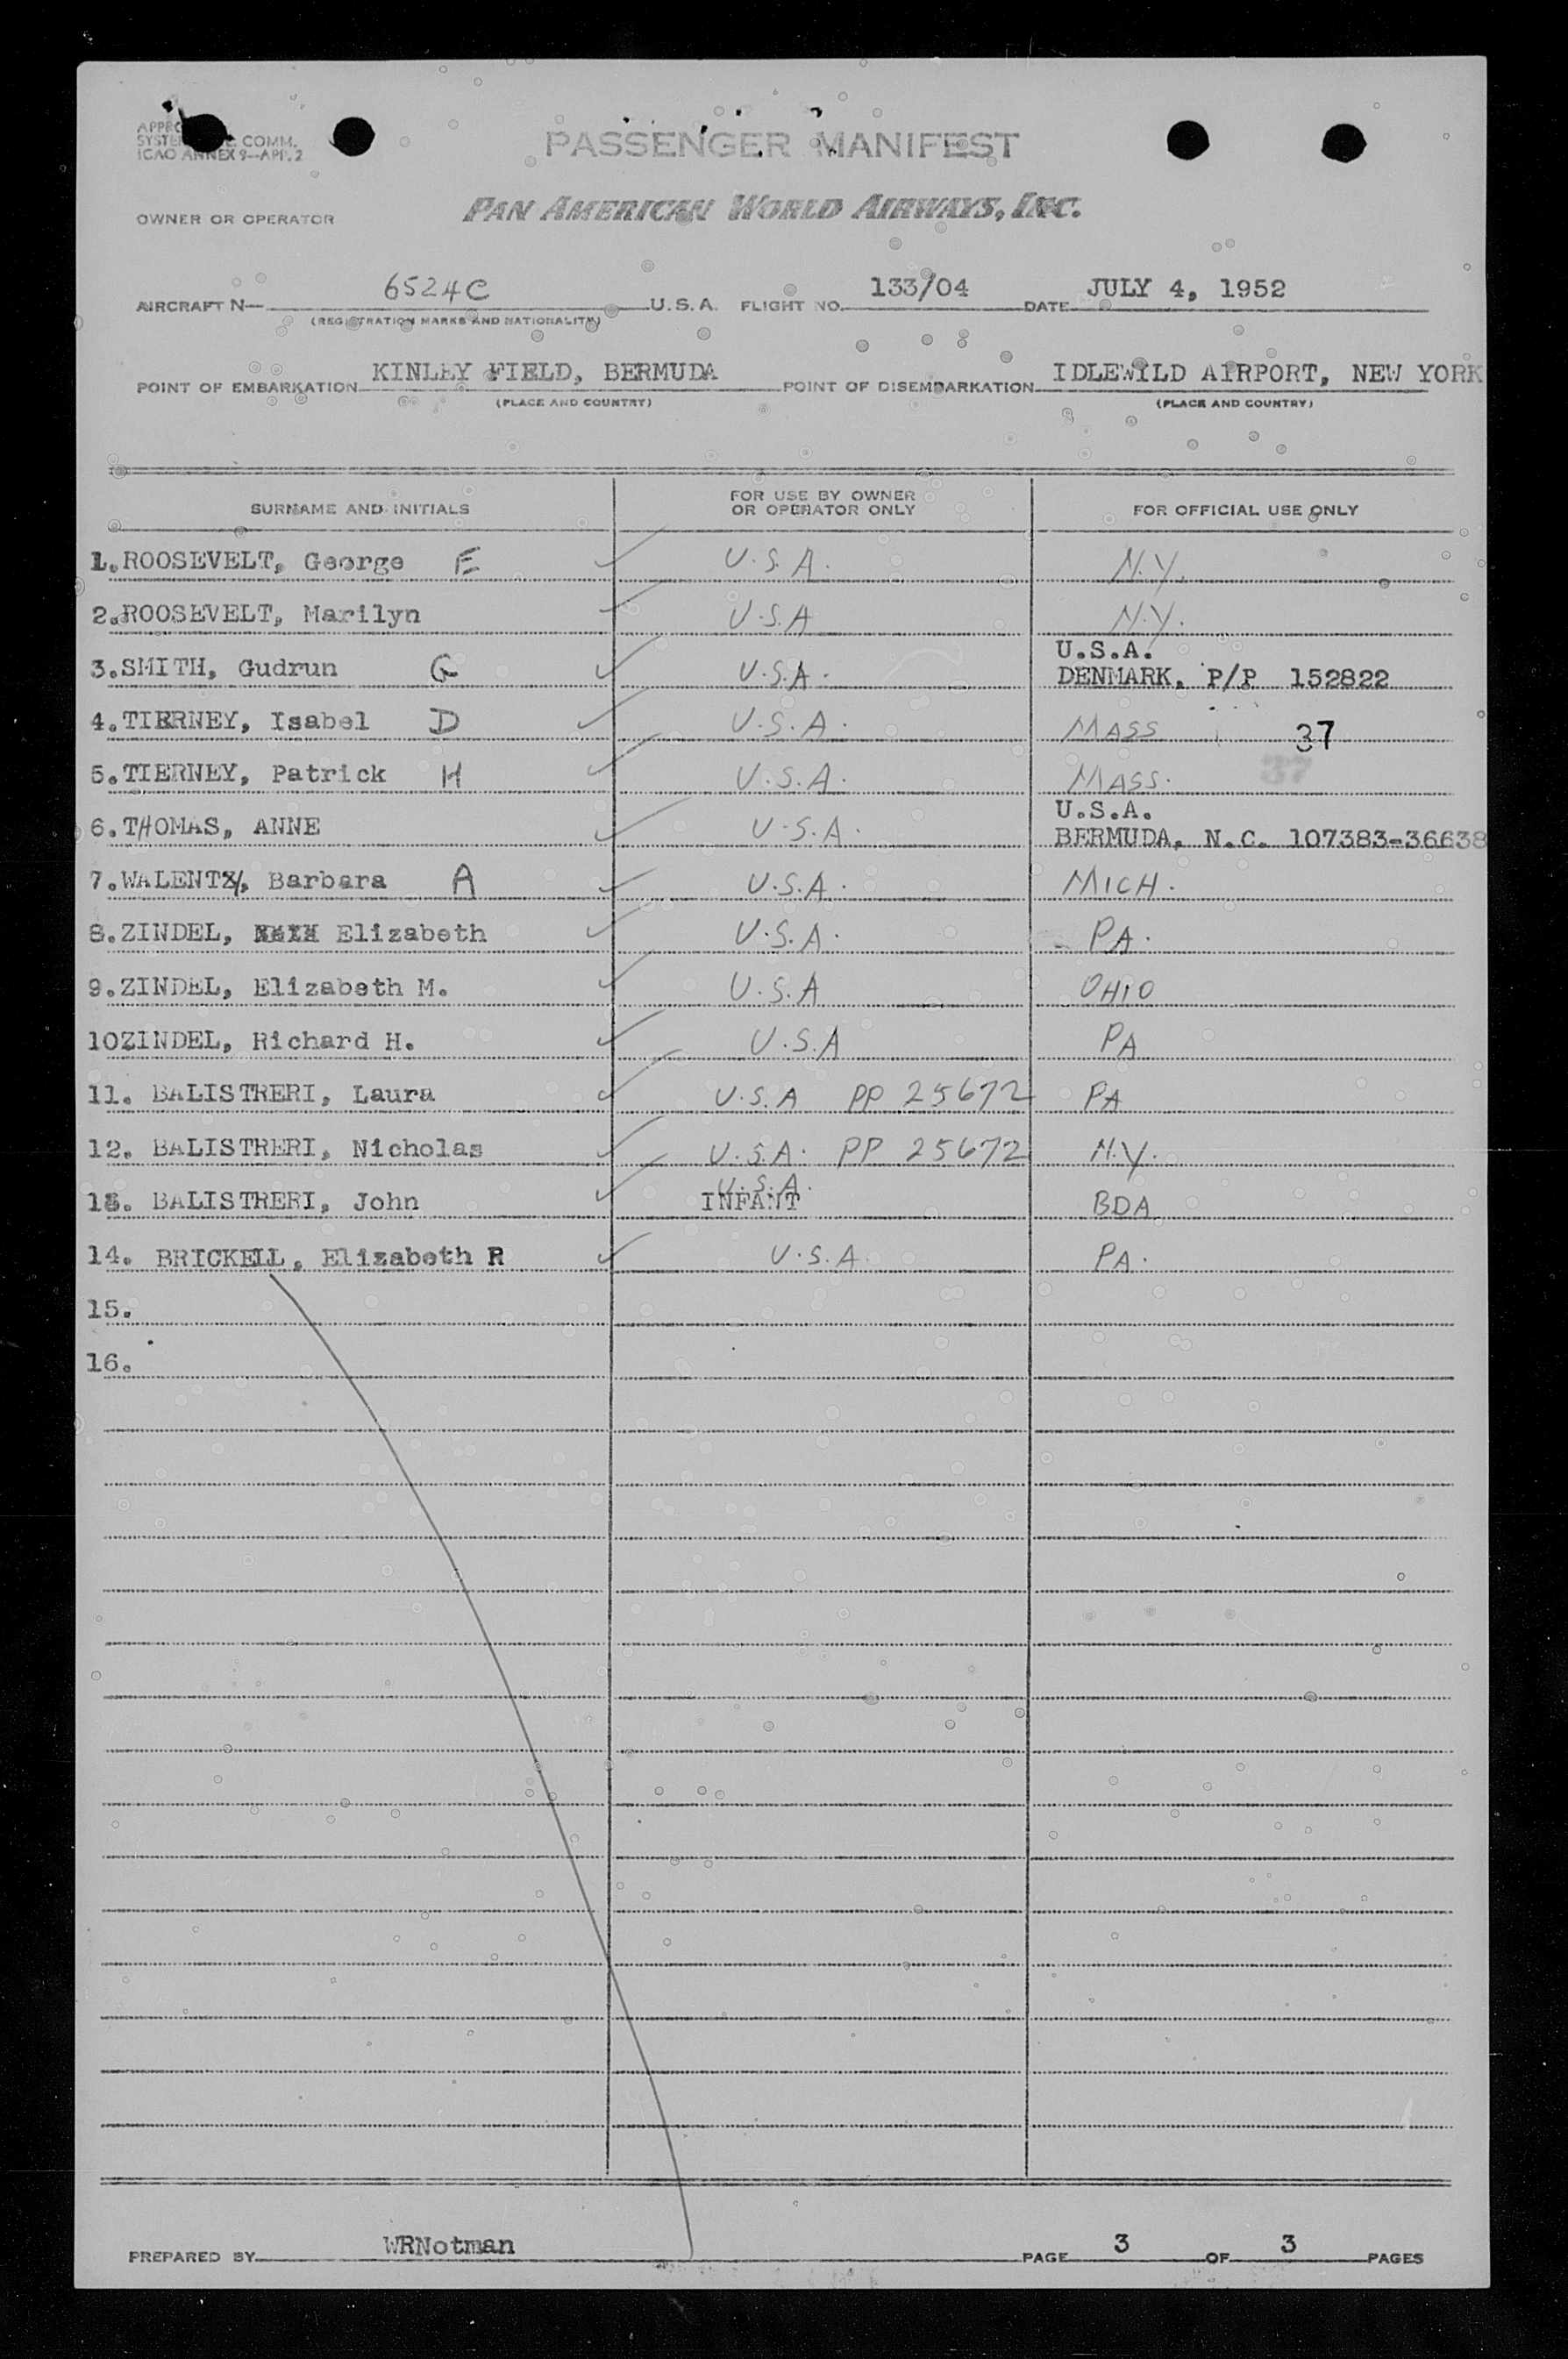 COMM.
ICAO ANNEX 9—APP. 2
PASSENGER MANIFEST
OWNER OR OPERATOR PAN AMERICAN WORLD AIRWAYS, INC.
AIRCRAFT N— 6524C U.S.A. FLIGHT NO. 133/04 DATE JULY 4, 1952
(REGISTRATION MARKS AND NATIONALITY)
POINT OF EMBARKATION KINLEY FIELD, BERMUDA POINT OF DISEMBARKATION IDLEWILD AIRPORT, NEW YORK
(PLACE AND COUNTRY) (PLACE AND COUNTRY)
SURNAME AND INITIALS FOR USE BY OWNER OR OPERATOR ONLY FOR OFFICIAL USE ONLY
1. ROOSEVELT, George E U.S.A. N.Y.
2. ROOSEVELT, Marilyn U.S.A N.Y.
U.S.A.
3. SMITH, Gudrun G U.S.A. DENMARK, P/P 152822
4. TIERNEY, Isabel D U.S.A. MASS 37
5. TIERNEY, Patrick H U.S.A. MASS. 37
U.S.A.
6. THOMAS, ANNE U.S.A. BERMUDA, N.C. 107383-36638
7. WALENTY, Barbara A U.S.A. MICH.
8. ZINDEL, Elizabeth U.S.A. PA.
9. ZINDEL, Elizabeth M. U.S.A OHIO
10 ZINDEL, Richard H. U.S.A PA
11. BALISTRERI, Laura U.S.A PP 25672 PA
12. BALISTRERI, Nicholas U.S.A. PP 25672 N.Y.
U.S.A.
13. BALISTRERI, John INFANT BDA
14. BRICKELL, Elizabeth R U.S.A. PA.
15.
16.
PREPARED BY WRNotman PAGE 3 OF 3 PAGES